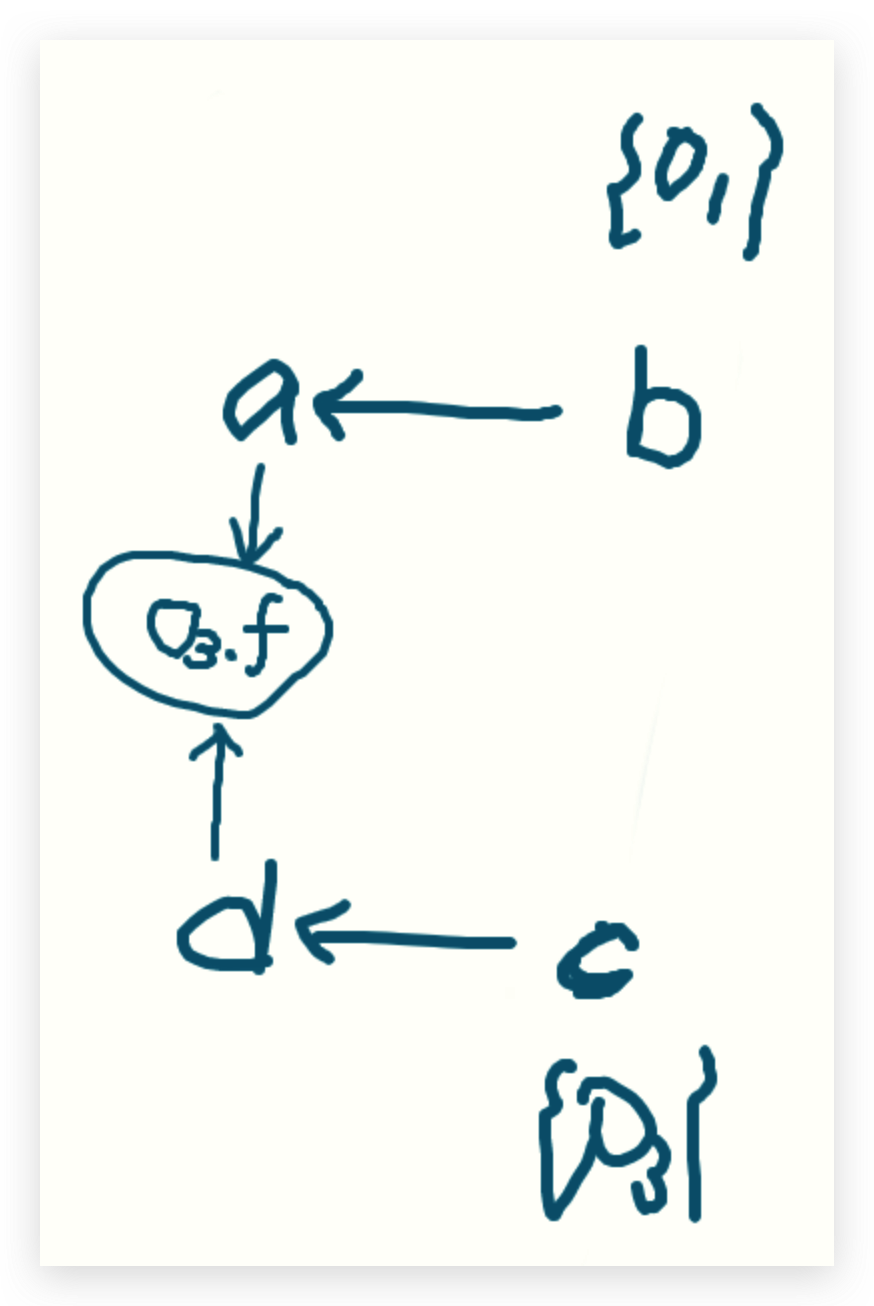 {o₁}
a ← b
o₃.f
d ← c
{o₃}